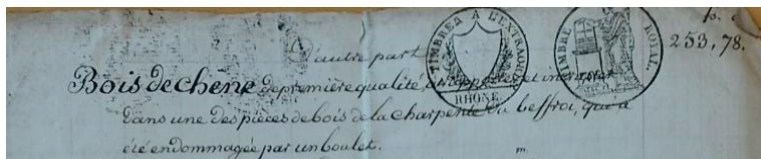 D'autre part 253,78.
TIMBRE A L'EXTRAORD. RHONE.
TIMBRE ROYAL.
Bois de chene de première qualité et incruster
dans une des pièces de bois de la charpente du beffroi, qui a
été endommagée par un boulet.